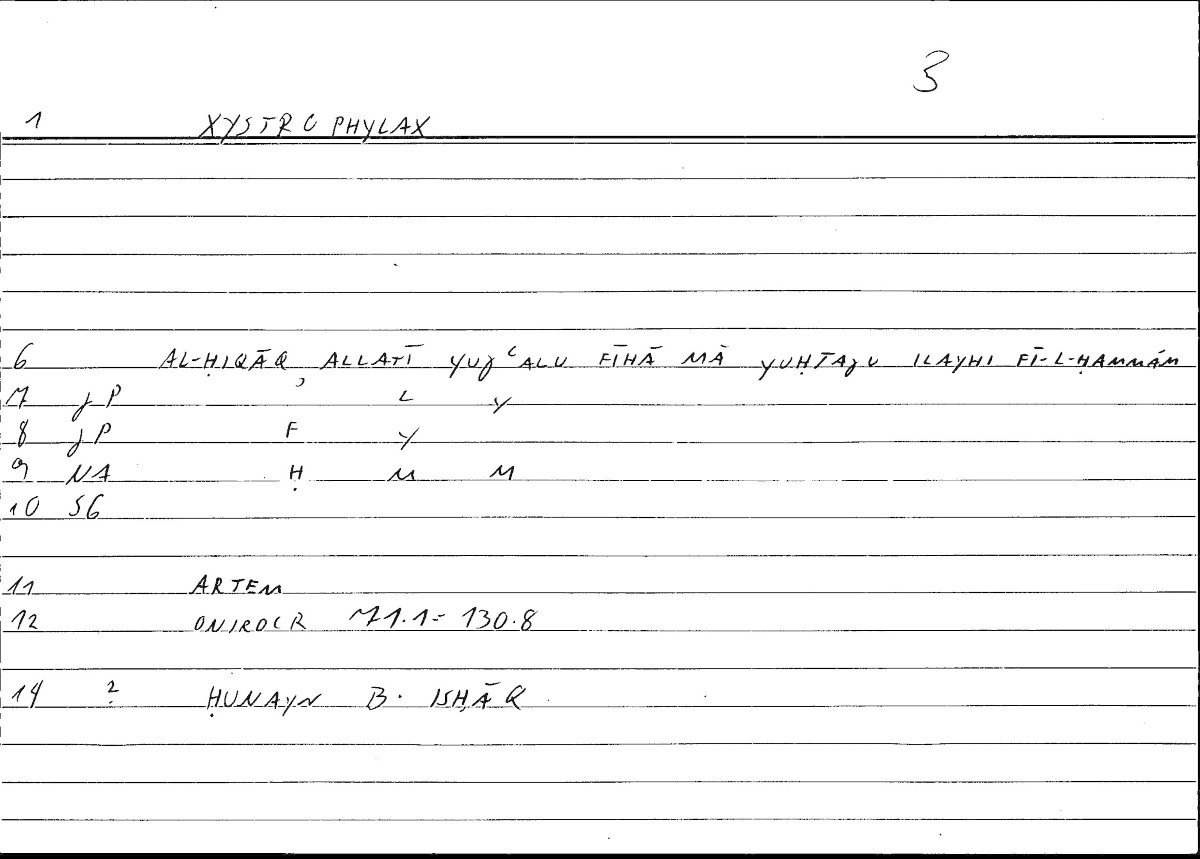 3
1 XYSTROPHYLAX
6 AL-ḤIQĀQ ALLATĪ YUJʿALU FĪHĀ MĀ YUḤTAJU ILAYHI FĪ-L-ḤAMMĀM
7 JP ʾ L Y
8 JP F Y
9 NA Ḥ M M
10 SG
11 ARTEM
12 ONIROCR 71.1 = 130.8
14 ? ḤUNAYN B. ISḤĀQ